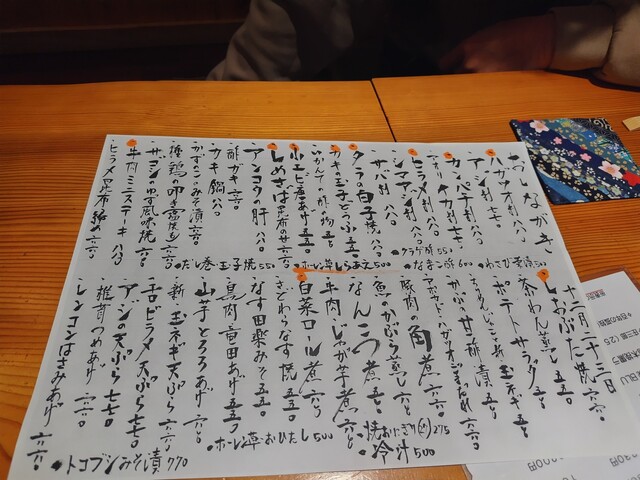 おしながき
ハガツオ刺 八八〇
アジ刺 七七〇
カンパチ刺 八八〇
アオリイカ刺 七七〇
ヒラメ刺 八八〇
シマアジ刺 八八〇
サバ刺 八八〇
タラの白子焼 八八〇
カキの玉子とうふ 五五〇
酢の物 五五〇
小エビ唐あげ 五五〇
しめさば 昆布のせ 六六〇
アンコウの肝 八八〇
酢ガキ 六六〇
カキ鍋 八八〇
かずのこのみそ漬 六六〇
種鶏の叩き
サゴシゆず風味焼 六六〇
牛肉ミニステーキ 八八〇
ヒラメ昆布〆め 六六〇
わさび 漬 500
なまこ酢 600
クラゲ酢 550
ホーレン草ごまあえ 500
だし巻玉子焼 550
十二月二十三日
しおぶた焼 六六〇
茶わん蒸し 五五〇
ポテトサラダ 五五〇
ちりめんじゃこと新玉ネギ 五五〇
かぶ甘酢漬 五五〇
アボカドとハガツオごまだれ
豚肉の角煮 六六〇
魚のかぶら蒸し 六六〇
なんこつ煮 五五〇
牛肉じゃが芋煮 六六〇
白菜ロール煮 六六〇
なす焼 五五〇
なす田楽みそ 五五〇
鳥肉竜田あげ 五五〇
山芋とろろあげ 六六〇
新玉ネギ天ぷら 六六〇
ヒラメ天ぷら 七七〇
アジの天ぷら 七七〇
椎茸つめあげ 六六〇
レンコンはさみあげ 六六〇
焼おにぎり 275
冷汁 500
ホーレン草おひたし 500
トコブシみそ漬 770